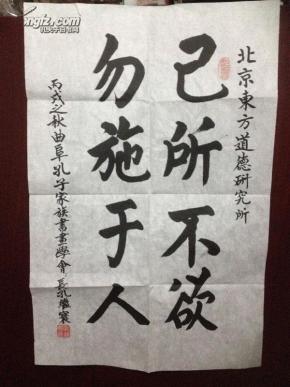 北京東方道德研究所
己所不欲
勿施于人
丙戌之秋曲阜孔子家族書畫學會會長孔繁裳